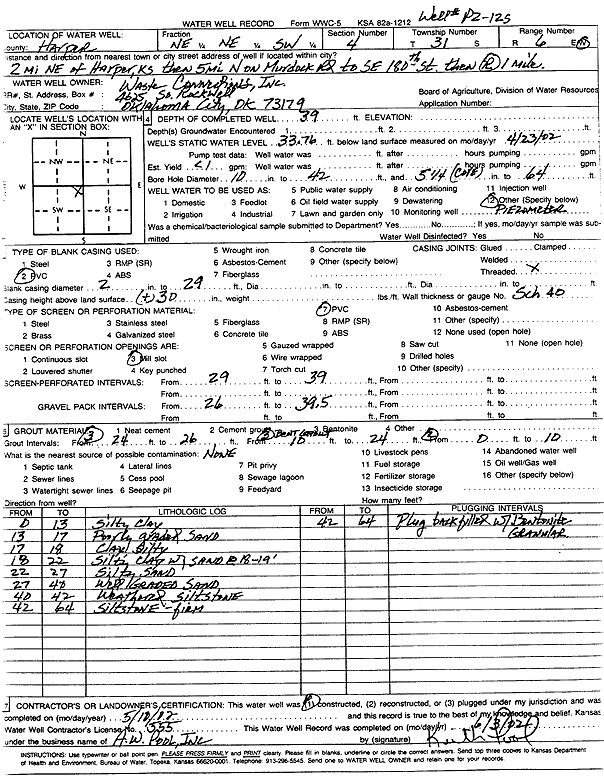 WATER WELL RECORD Form WWC-5 KSA 82a-1212 Well# PZ-125
LOCATION OF WATER WELL: Fraction Section Number Township Number Range Number
County: Harper NE ¼ NE ¼ SW ¼ 4 T 31 S R 6 E/W
Distance and direction from nearest town or city street address of well if located within city?
2 mi NE of Harper, KS then 5 mi N on Murdock Rd to SE 180th St. then (R) 1 mile.
WATER WELL OWNER: Waste Connections, Inc.
RR#, St. Address, Box # : 4625 So. Rockwell Board of Agriculture, Division of Water Resources
City, State, ZIP Code : Oklahoma City, OK 73179 Application Number:
LOCATE WELL'S LOCATION WITH AN "X" IN SECTION BOX:
N
NW NE
W E
X
SW SE
S
4 DEPTH OF COMPLETED WELL 39 ft. ELEVATION:
Depth(s) Groundwater Encountered 1 ft. 2 ft. 3 ft.
WELL'S STATIC WATER LEVEL 33.76 ft. below land surface measured on mo/day/yr 4/23/02
Pump test data: Well water was ft. after hours pumping gpm
Est. Yield <1 gpm: Well water was ft. after hours pumping gpm
Bore Hole Diameter 10 in. to 42 ft., and 5 1/4 (CORE) in. to 64 ft.
WELL WATER TO BE USED AS: 5 Public water supply 8 Air conditioning 11 Injection well
1 Domestic 3 Feedlot 6 Oil field water supply 9 Dewatering 12 Other (Specify below)
2 Irrigation 4 Industrial 7 Lawn and garden only 10 Monitoring well PIEZOMETER
Was a chemical/bacteriological sample submitted to Department? Yes No ; If yes, mo/day/yr sample was submitted
Water Well Disinfected? Yes No
TYPE OF BLANK CASING USED: 5 Wrought iron 8 Concrete tile CASING JOINTS: Glued Clamped
1 Steel 3 RMP (SR) 6 Asbestos-Cement 9 Other (specify below) Welded
2 PVC 4 ABS 7 Fiberglass Threaded X
Blank casing diameter 2 in. to 29 ft., Dia in. to ft., Dia in. to ft.
Casing height above land surface (+) 30 in., weight lbs./ft. Wall thickness or gauge No. Sch. 40
TYPE OF SCREEN OR PERFORATION MATERIAL: 7 PVC 10 Asbestos-cement
1 Steel 3 Stainless steel 5 Fiberglass 8 RMP (SR) 11 Other (specify)
2 Brass 4 Galvanized steel 6 Concrete tile 9 ABS 12 None used (open hole)
SCREEN OR PERFORATION OPENINGS ARE: 5 Gauzed wrapped 8 Saw cut 11 None (open hole)
1 Continuous slot 3 Mill slot 6 Wire wrapped 9 Drilled holes
2 Louvered shutter 4 Key punched 7 Torch cut 10 Other (specify)
SCREEN-PERFORATED INTERVALS: From 29 ft. to 39 ft., From ft. to ft.
From ft. to ft., From ft. to ft.
GRAVEL PACK INTERVALS: From 26 ft. to 39.5 ft., From ft. to ft.
From ft. to ft., From ft. to ft.
6 GROUT MATERIAL: 1 Neat cement 2 Cement grout 3 Bentonite 4 Other
Grout Intervals: From 24 ft. to 26 ft., From 10 ft. to 24 ft., From 0 ft. to 10 ft.
What is the nearest source of possible contamination: NONE 10 Livestock pens 14 Abandoned water well
1 Septic tank 4 Lateral lines 7 Pit privy 11 Fuel storage 15 Oil well/Gas well
2 Sewer lines 5 Cess pool 8 Sewage lagoon 12 Fertilizer storage 16 Other (specify below)
3 Watertight sewer lines 6 Seepage pit 9 Feedyard 13 Insecticide storage
Direction from well? How many feet?
FROM TO LITHOLOGIC LOG FROM TO PLUGGING INTERVALS
0 13 Silty Clay 42 64 Plug backfilled w/ Bentonite
13 17 Poorly graded Sand GRANULAR
17 18 Clay, Silty
18 22 Silty Clay w/ SAND @ 18-19'
22 27 Silty SAND
27 40 Well GRADED SAND
40 42 WEATHERED SILTSTONE
42 64 SILTSTONE - FIRM
7 CONTRACTOR'S OR LANDOWNER'S CERTIFICATION: This water well was (1) constructed, (2) reconstructed, or (3) plugged under my jurisdiction and was
completed on (mo/day/year) 5/10/02 and this record is true to the best of my knowledge and belief. Kansas
Water Well Contractor's License No. 355 This Water Well Record was completed on (mo/day/yr) 6/3/02
under the business name of H.W. Pool, Inc by (signature)
INSTRUCTIONS: Use typewriter or ball point pen. PLEASE PRESS FIRMLY and PRINT clearly. Please fill in blanks, underline or circle the correct answers. Send top three copies to Kansas Department
of Health and Environment, Bureau of Water, Topeka, Kansas 66620-0001. Telephone: 913-296-5545. Send one to WATER WELL OWNER and retain one for your records.